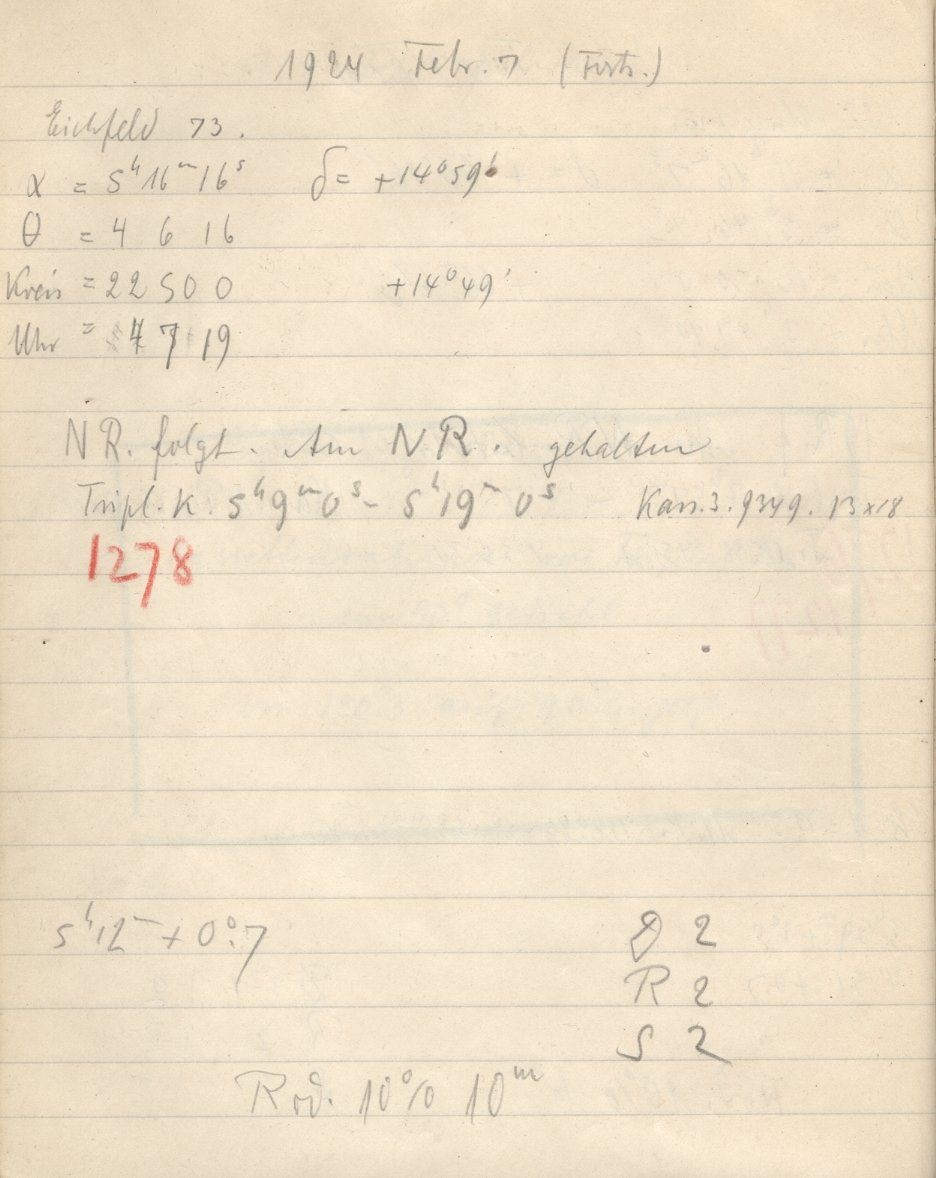 1924 Febr. 7 (Forts.)
Eichfeld 73.
α = 5ʰ16ᵐ16ˢ δ = +14°59'
θ = 4 6 16
Kreis = 22 50 0 +14°49'
Uhr = 4 7 19
NR. folgt. Am NR. gehalten
Tripl. K. 5ʰ9ᵐ0ˢ - 5ʰ19ᵐ0ˢ Kass. 3. 9349. 13x18
1278
5ʰ12ᵐ + 0°.7 D 2
R 2
S 2
Rod. 10% 10ᵐ